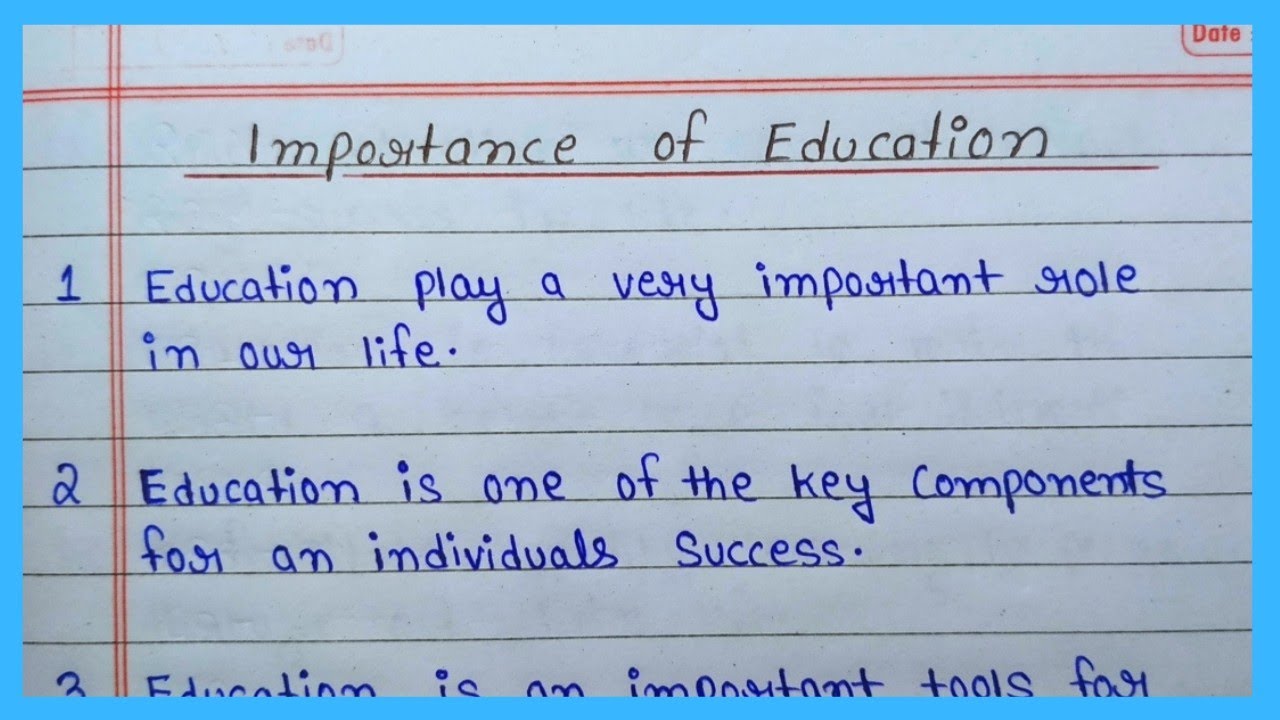 Date
Importance of Education
1 Education play a very important role
in our life.
2 Education is one of the key components
for an individuals success.
3 Education is an important tools for